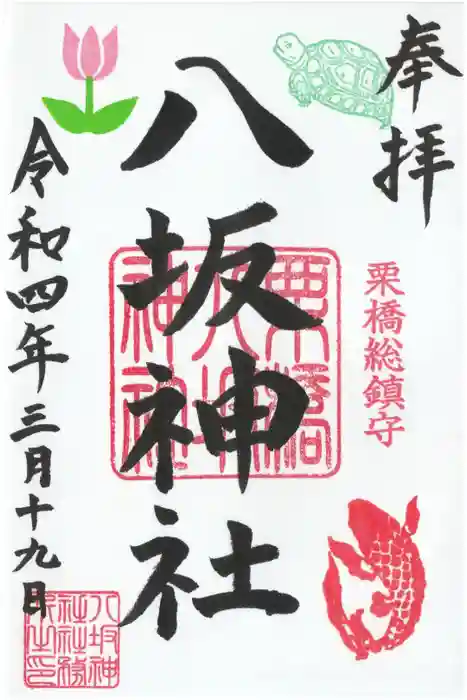 奉拝
栗橋総鎮守
八坂神社
栗橋
八坂
神社
令和四年三月十九日
八坂神
社社務
所之印